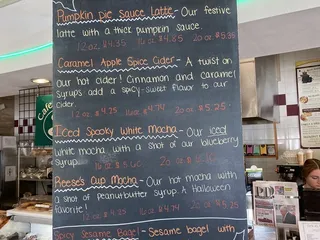 Pumpkin pie sauce Latte - Our festive
latte with a thick pumpkin sauce.
12 oz. $4.35 16 oz $4.85 20 oz $5.35
Caramel Apple Spice Cider - A twist on
our hot cider! Cinnamon and caramel
syrups add a spicy-sweet flavor to our
cider.
12 oz $4.25 16 oz $4.74 20 oz $5.25
Iced Spooky White Mocha - Our iced
white mocha, with a shot of our blueberry
syrup.
Reese's Cup Mocha - Our hot mocha with
a shot of peanutbutter syrup. A Halloween
favorite!
12 oz $4.25 16 oz $4.74 20 oz $5.25
Spicy Sesame Bagel - Sesame bagel with